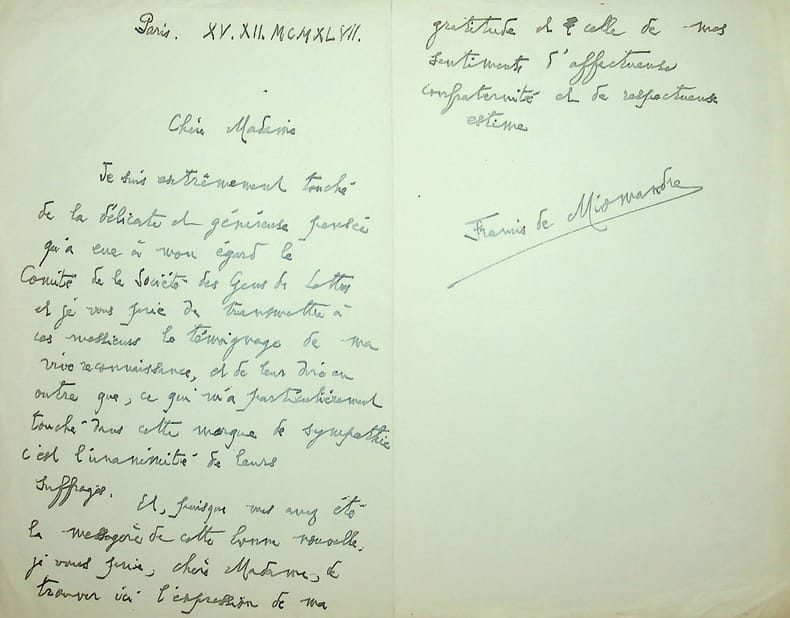 Paris. XV. XII. MCMXLVII.
Chère Madame
Je suis extrêmement touché
de la délicate et généreuse pensée
qu'a eue à mon égard le
Comité de la Société des Gens de Lettres
et je vous prie de transmettre à
ces messieurs le témoignage de ma
vive reconnaissance, et de leur dire en
outre que, ce qui m'a particulièrement
touché dans cette marque de sympathie
c'est l'unanimité de leurs
suffrages. Et, puisque vous avez été
la messagère de cette bonne nouvelle,
je vous prie, chère Madame, de
trouver ici l'expression de ma
gratitude et celle de mes
sentiments d'affectueuse
confraternité et de respectueuse
estime
Francis de Miomandre